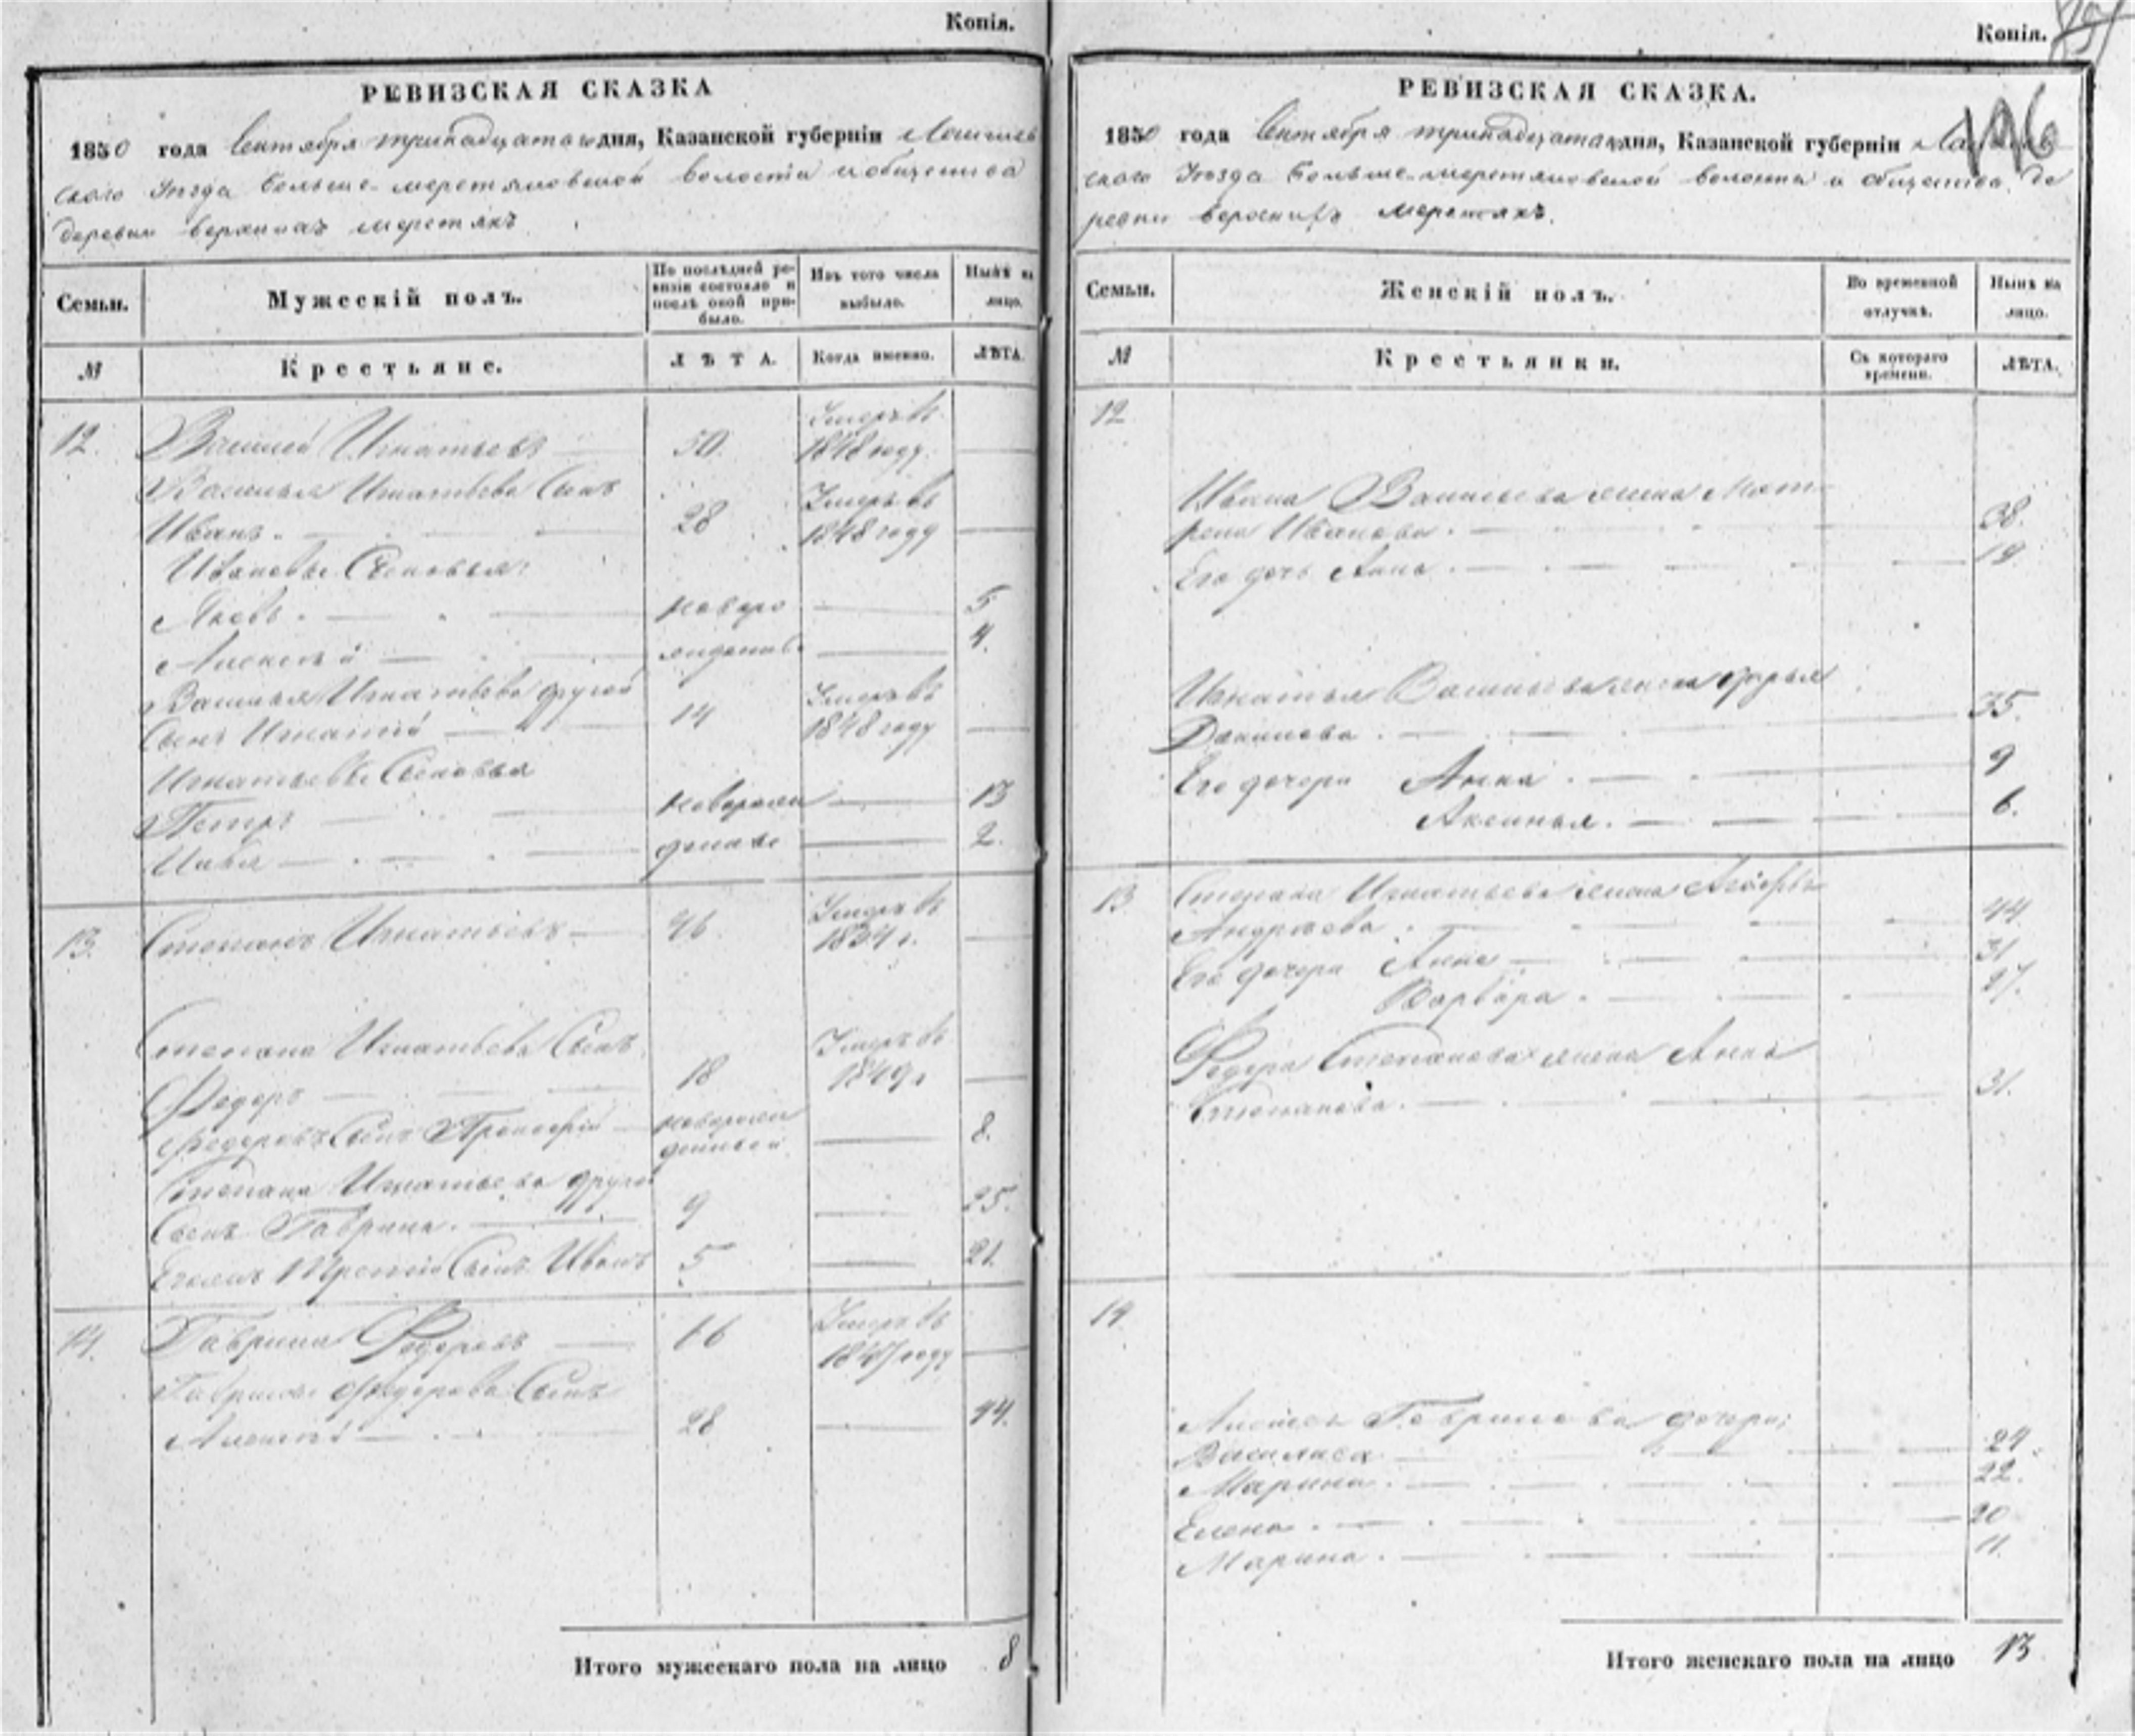 Копія.
РЕВИЗСКАЯ СКАЗКА
1850 года Сентября тринадцатого дня, Казанской губерніи Лаишев
скаго Уѣзда Больше-меретяковской волости и общества
деревни верхнихъ меретякъ
Семьи.
Мужескій полъ.
По послѣдней ре-
визіи состояло и
послѣ оной при-
было.
Изъ того числа
выбыло.
Нынѣ на
лицо.
№
Крестьяне.
ЛѢТА.
Когда именно.
ЛѢТА.
12. Василей Игнатьевъ 50. Умеръ въ
1848 году.
Василья Игнатьева Сынъ
Иванъ. 28 Умеръ въ
1848 году
Ивановы Сыновья:
Яковъ. новоро 5
Алексѣй жденные 4.
Василья Игнатьева другой
Сынъ Игнатій 14 Умеръ въ
1848 году
Игнатьевы Сыновья
Петръ новорож 13
Илья денные 2.
13. Степанъ Игнатьевъ 46. Умеръ въ
1834 г.
Степана Игнатьева Сынъ
Федоръ 18 Умеръ въ
1849 г
Федоровъ Сынъ Прокофій новорож
денной 8.
Степана Игнатьева другой
Сынъ Гаврила. 9 25.
Егожъ Третій Сынъ Иванъ 5 21.
14. Гаврила Федоровъ 46 Умеръ въ
1847 году
Гаврилы Федорова Сынъ
Алексѣй 28 44.
Итого мужескаго пола на лицо 8
Копія.
РЕВИЗСКАЯ СКАЗКА.
1850 года Сентября тринадцатаго дня, Казанской губерніи Лаишев
скаго Уѣзда Больше-меретяковской волости и общества, де
ревни верхнихъ Меретякъ.
Семьи.
Женскій полъ.
Во временной
отлучкѣ.
Нынѣ на
лицо.
№
Крестьянки.
Съ котораго
времени.
ЛѢТА.
12
Ивана Васильева жена Мат-
рена Иванова. 38.
Его дочь Анна. 19
Игнатья Васильева жена Дарья
Данилова. 35.
Его дочери Анна. 9
Аксинья. 6.
13 Степана Игнатьева жена
Андреева. 44.
Его дочери Анна 31
Варвара. 27.
Федора Степанова жена Анна
Степанова. 31.
14
Гаврилова дочери:
Василиса 24.
Марина. 22.
Елена. 20
Марина. 11.
Итого женскаго пола на лицо 13